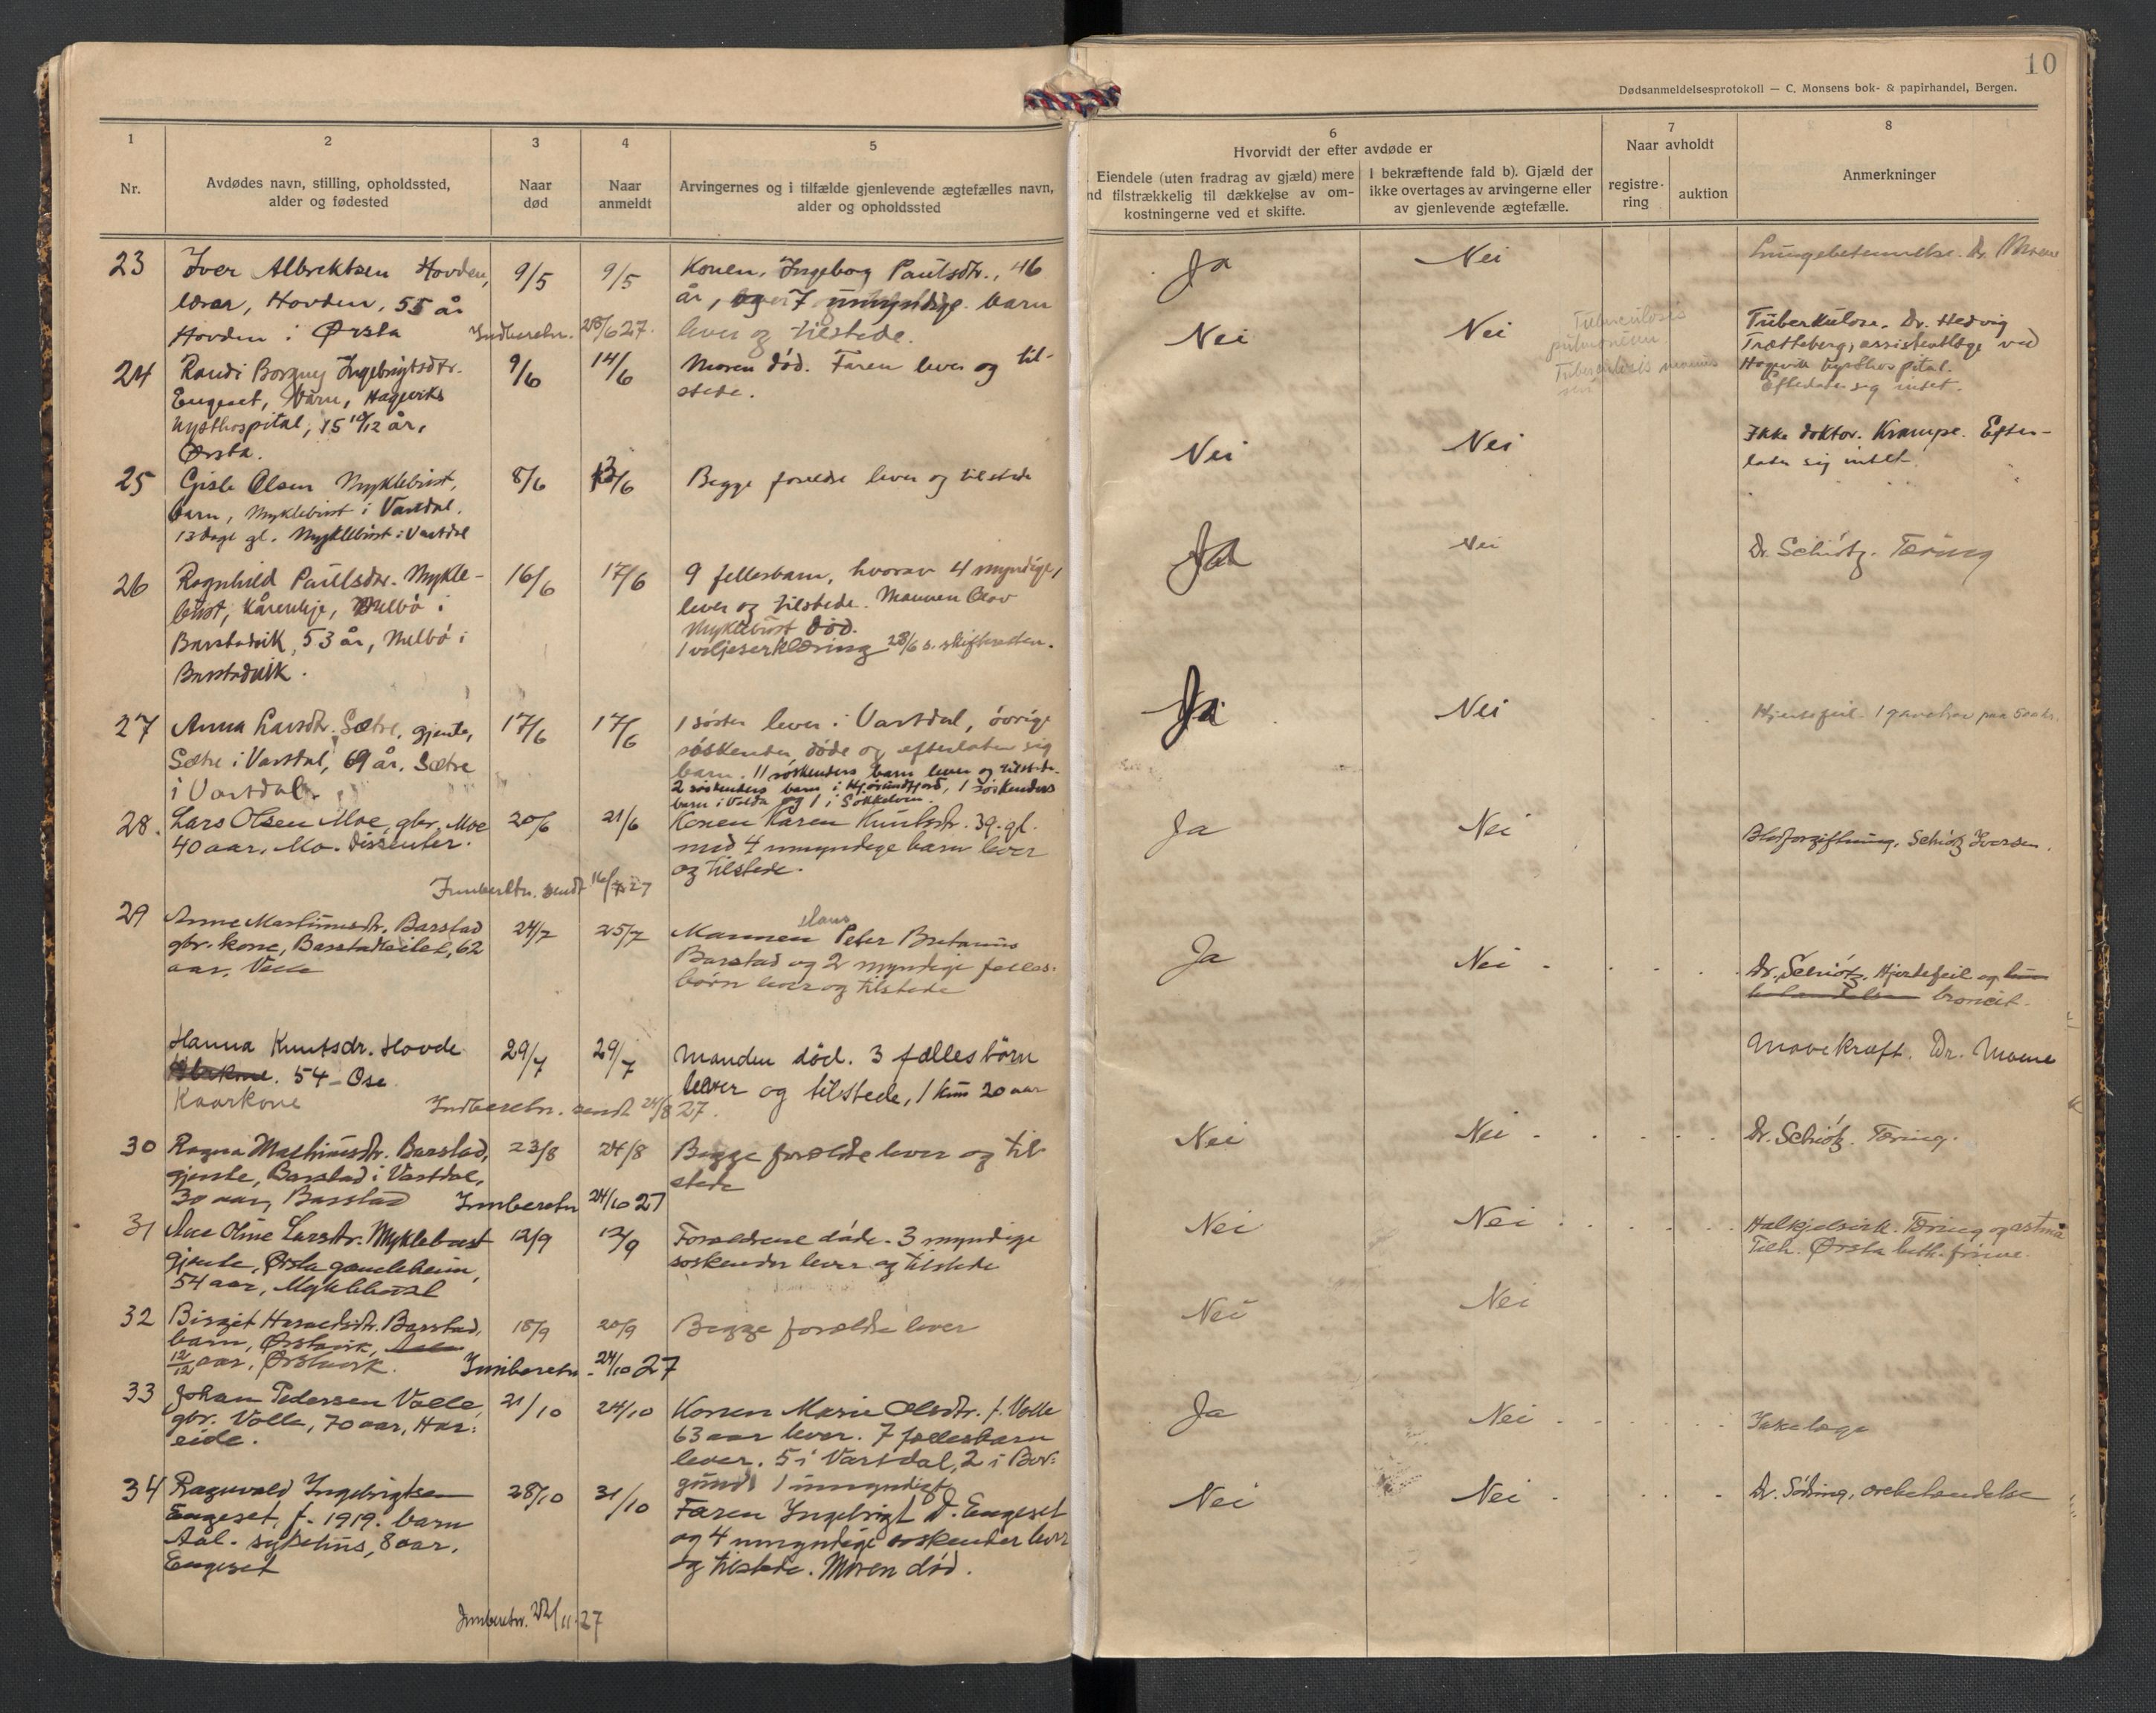 10
Dødsanmeldelsesprotokoll — C. Monsens bok- & papirhandel, Bergen.
1
Nr.
2
Avdødes navn, stilling, opholdssted,
alder og fødested
3
Naar
død
4
Naar
anmeldt
5
Arvingernes og i tilfælde gjenlevende ægtefælles navn,
alder og opholdssted
6
Hvorvidt der efter avdøde er
Eiendele (uten fradrag av gjæld) mere
nd tilstrækkelig til dækkelse av om-
kostningerne ved et skifte.
I bekræftende fald b). Gjæld der
ikke overtages av arvingerne eller
av gjenlevende ægtefælle.
7
Naar avholdt
registre-
ring
auktion
8
Anmerkninger
23
Iver Albrektsen Hovden,
lærar, Hovden, 55 år
Hovden i Ørsta
9/5
9/5
Konen, Ingeborg Paulsdtr., 46
år, og 7 umyndige barn
lever og tilstede.
Indberetn. 28/6 27.
Ja
Nei
Lungebetennelse. Dr. Moene
24
Randi Borgny Ingebrigtsdtr.
Engeset, barn, Hagevik
kysthospital, 15 10/12 år,
Ørsta.
9/6
14/6
Moren død. Faren lever og til-
stede.
Nei
Nei
Tuberculosis
pulmonum
Tuberkulose. Dr. Hedvig
Trætteberg, assistentlæge ved
Hagevik kysthospital.
Efterlater sig intet.
25
Gisle Olsen Myklebust,
barn, Myklebust i Vartdal.
13 dage gl. Myklebust i Vartdal
8/6
13/6
Begge foreldre lever og tilstede
Nei
Nei
Ikke doktor. Krampe. Efter-
later sig intet.
26
Ragnhild Paulsdtr. Mykle-
bust, kårenkje, Nulbö i
Barstadvik, 53 år, Nulbö i
Barstadvik.
16/6
17/6
9 fellesbarn, hvorav 4 myndige,
lever og tilstede. Mannen Olav
Myklebust død.
1 viljeserklæring 28/6 s. skifteretten.
Ja
Nei
Dr. Schiøtz. Tæring
27
Anna Larsdtr. Sætre, gjente,
Sætre i Vartdal, 69 år. Sætre
i Vartdal.
17/6
17/6
1 søster lever i Vartdal, övrige
søskender døde og efterlater sig
barn. 11 søskenders barn lever og tilstede.
2 søskenders barn i Hjørundfjord, 1 søskenders
barn i Volda og 1 i Søkkelven.
Ja
Nei
Hjertefeil. 1 gavebrev paa 500 kr.
28.
Lars Olsen Moe, gbr. Moe
40 aar. Mo. Dissenter.
20/6
21/6
Konen Karen Knutsdtr. 39. gl.
med 4 umyndige barn lever
og tilstede.
Innberetn. sendt 16/7 27
Ja
Nei
Blodforgiftning. Schiøtz Iversen.
29
Anne Martinusdtr. Barstad
gbr. kone, Barstad, 62
aar.
24/7
25/7
Hans
Mannen Peter
Barstad og 2 myndige felles-
børn lever og tilstede
Ja
Nei
Dr. Schiøtz. Hjertefeil og
broncit.
Hanna Knutsdr. Hovde
54 - Ose
Kaarkone
29/7
29/7
Manden död. 3 fælles börn
lever og tilstede, 1 kun 20 aar
Indberetn. sendt 24/8 27.
Mavekræft. Dr. Moene
30
Ragna Mathiasdtr. Barstad,
gjente, Barstad i Vartdal,
30 aar, Barstad
23/8
24/8
Begge foreldre lever og til-
stede
Innberetn 24/10 27
Nei
Nei
Dr. Schiøtz. Tæring.
31
Ane Oline Larsdtr. Myklebust
gjente, Ørsta gamleheim,
54 aar, Myklebust
12/9
13/9
Foreldrene døde. 3 myndige
søskender lever og tilstede
Nei
Nei
Halkjelsvik. Tæring og astma
Tilh. Ørsta luth. frime.
32
Birgit Haraldsdtr. Barstad,
barn, Ørstavik,
12/12 aar, Ørstavik.
18/9
20/9
Begge foreldre lever
Innberetn. 24/10 27
Nei
Nei
33
Johan Pedersen Valle
gbr. Valle, 70 aar, Har-
eide.
21/10
24/10
Konen Marie Olsdtr. f. Valle
63 aar lever. 7 fellesbarn
lever. 5 i Vartdal, 2 i Bor-
gund 1 umyndigt
Ja
Nei
Ikke læge
34
Ragnvald Ingebrigtsen
Engeset, f. 1919. barn
Aal. sykehus, 8 aar.
Engeset
28/10
31/10
Faren Ingebrigt D. Engeset
og 4 umyndige søskender lever
og tilstede. Moren død.
Nei
Nei
Dr. Söring, ørebetendelse
Innberetn. 22/11-27